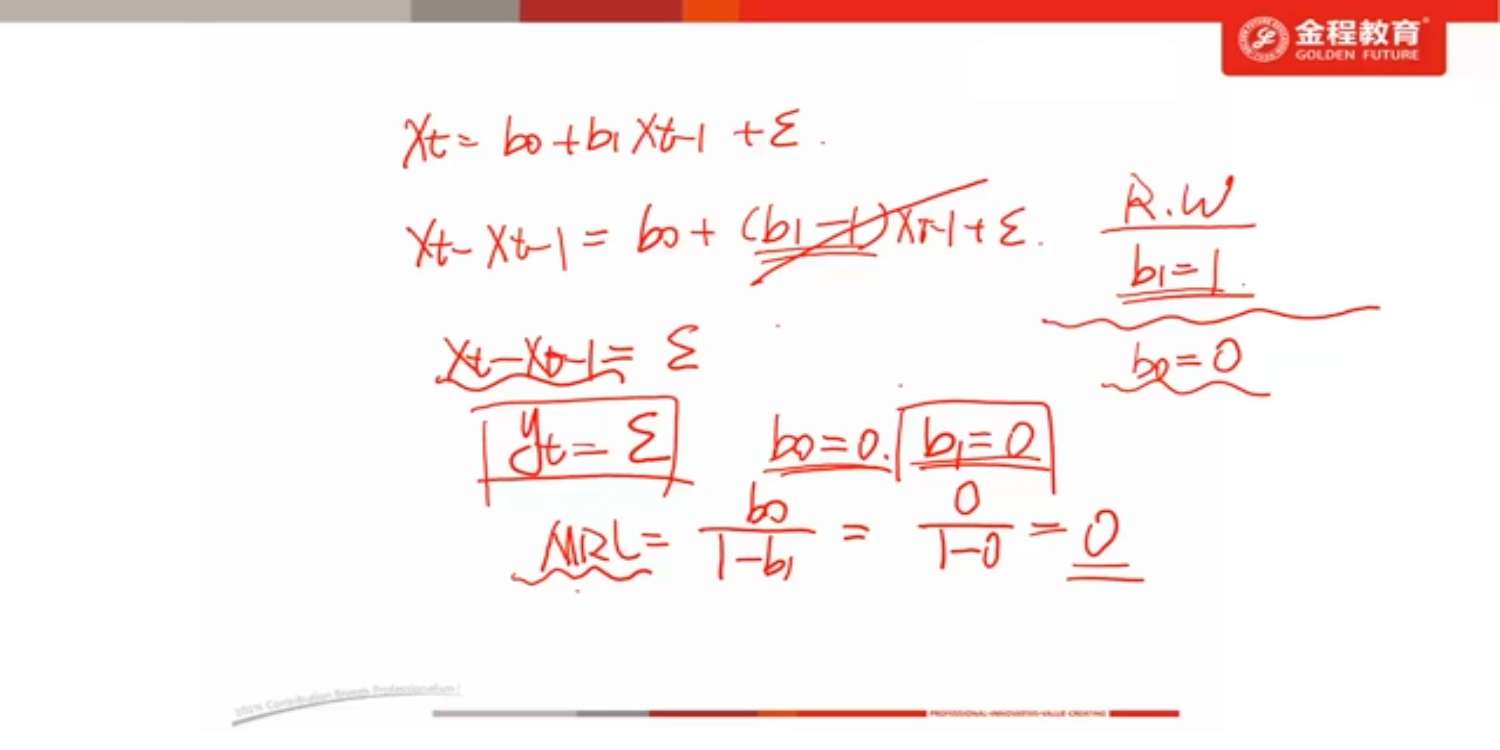 金程教育
GOLDEN FUTURE
Xt = b0 + b1 Xt-1 + Σ.
Xt - Xt-1 = b0 + (b1 - 1) Xt-1 + Σ.
R.W
b1 = 1.
b0 = 0
Xt - Xt-1 = Σ
yt = Σ
b0 = 0. b1 = 0
MRL = b0/(1-b1) = 0/(1-0) = 0
PROFESSIONAL·INNOVATIVE·VALUE CREATING